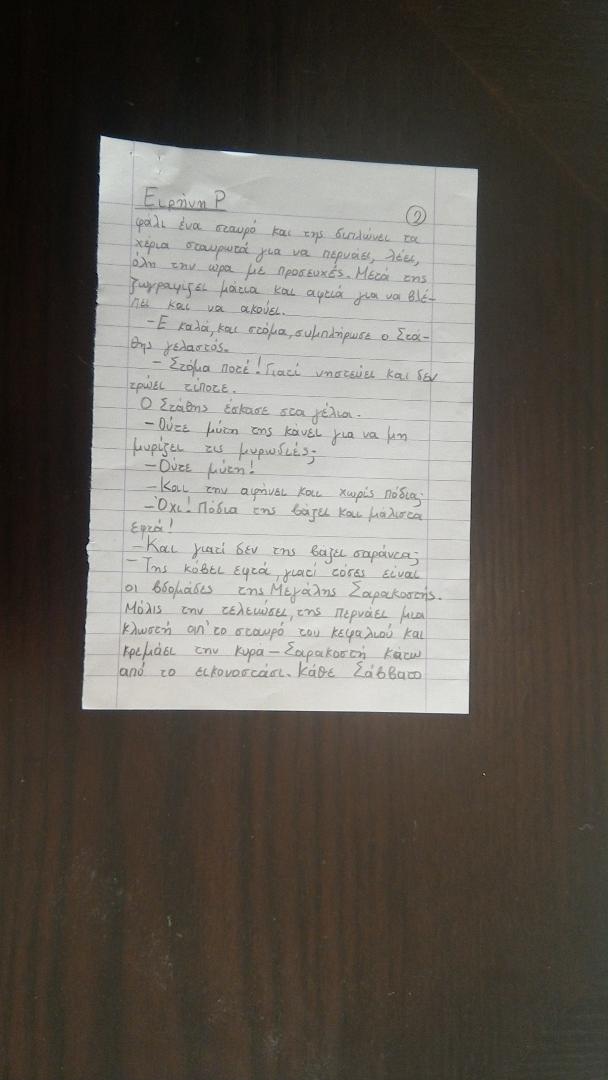 Ειρήνη Ρ
2
φάλι ένα σταυρό και της διπλώνει τα
χέρια σταυρωτά για να περνάει, λέει,
όλη την ώρα με προσευχές. Μετά της
ζωγραφίζει μάτια και αφτιά για να βλέ-
πει και να ακούει.
-Ε καλά, και στόμα, συμπλήρωσε ο Στά-
θης γελαστός.
- Στόμα ποτέ! Γιατί νηστεύει και δεν
τρώει τίποτε.
Ο Στάθης έσκασε στα γέλια.
-Ούτε μύτη της κάνει για να μη
μυρίζει τις μυρωδιές;
-Ούτε μύτη!
-Και την αφήνει και χωρίς πόδια;
-Όχι! Πόδια της βάζει και μάλιστα
εφτά!
-Και γιατί δεν της βάζει σαράντα;
-Της κόβει εφτά, γιατί τόσες είναι
οι βδομάδες της Μεγάλης Σαρακοστής.
Μόλις την τελειώσει, της περνάει μια
κλωστή απ' το σταυρό του κεφαλιού και
κρεμάει την κυρά-Σαρακοστή κάτω
από το εικονοστάσι. Κάθε Σάββατο